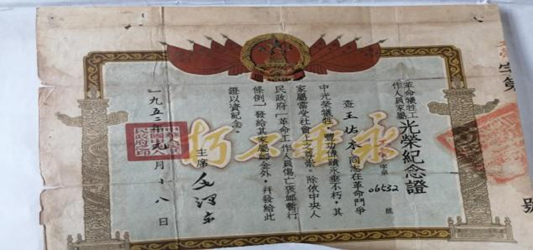 革命犧牲工
作人員家屬光榮紀念證
查王佑本同志在革命鬥爭
中光榮犧牲
功績永垂不朽，其
家屬當受社會上之尊崇。除依中央人
民政府「革命工作人員傷亡褒卹暫行
條例」發給其家屬卹金外，并發給此
證以資紀念。
主席 毛澤東
一九五
月十八日
永垂不朽
字第
06652
號